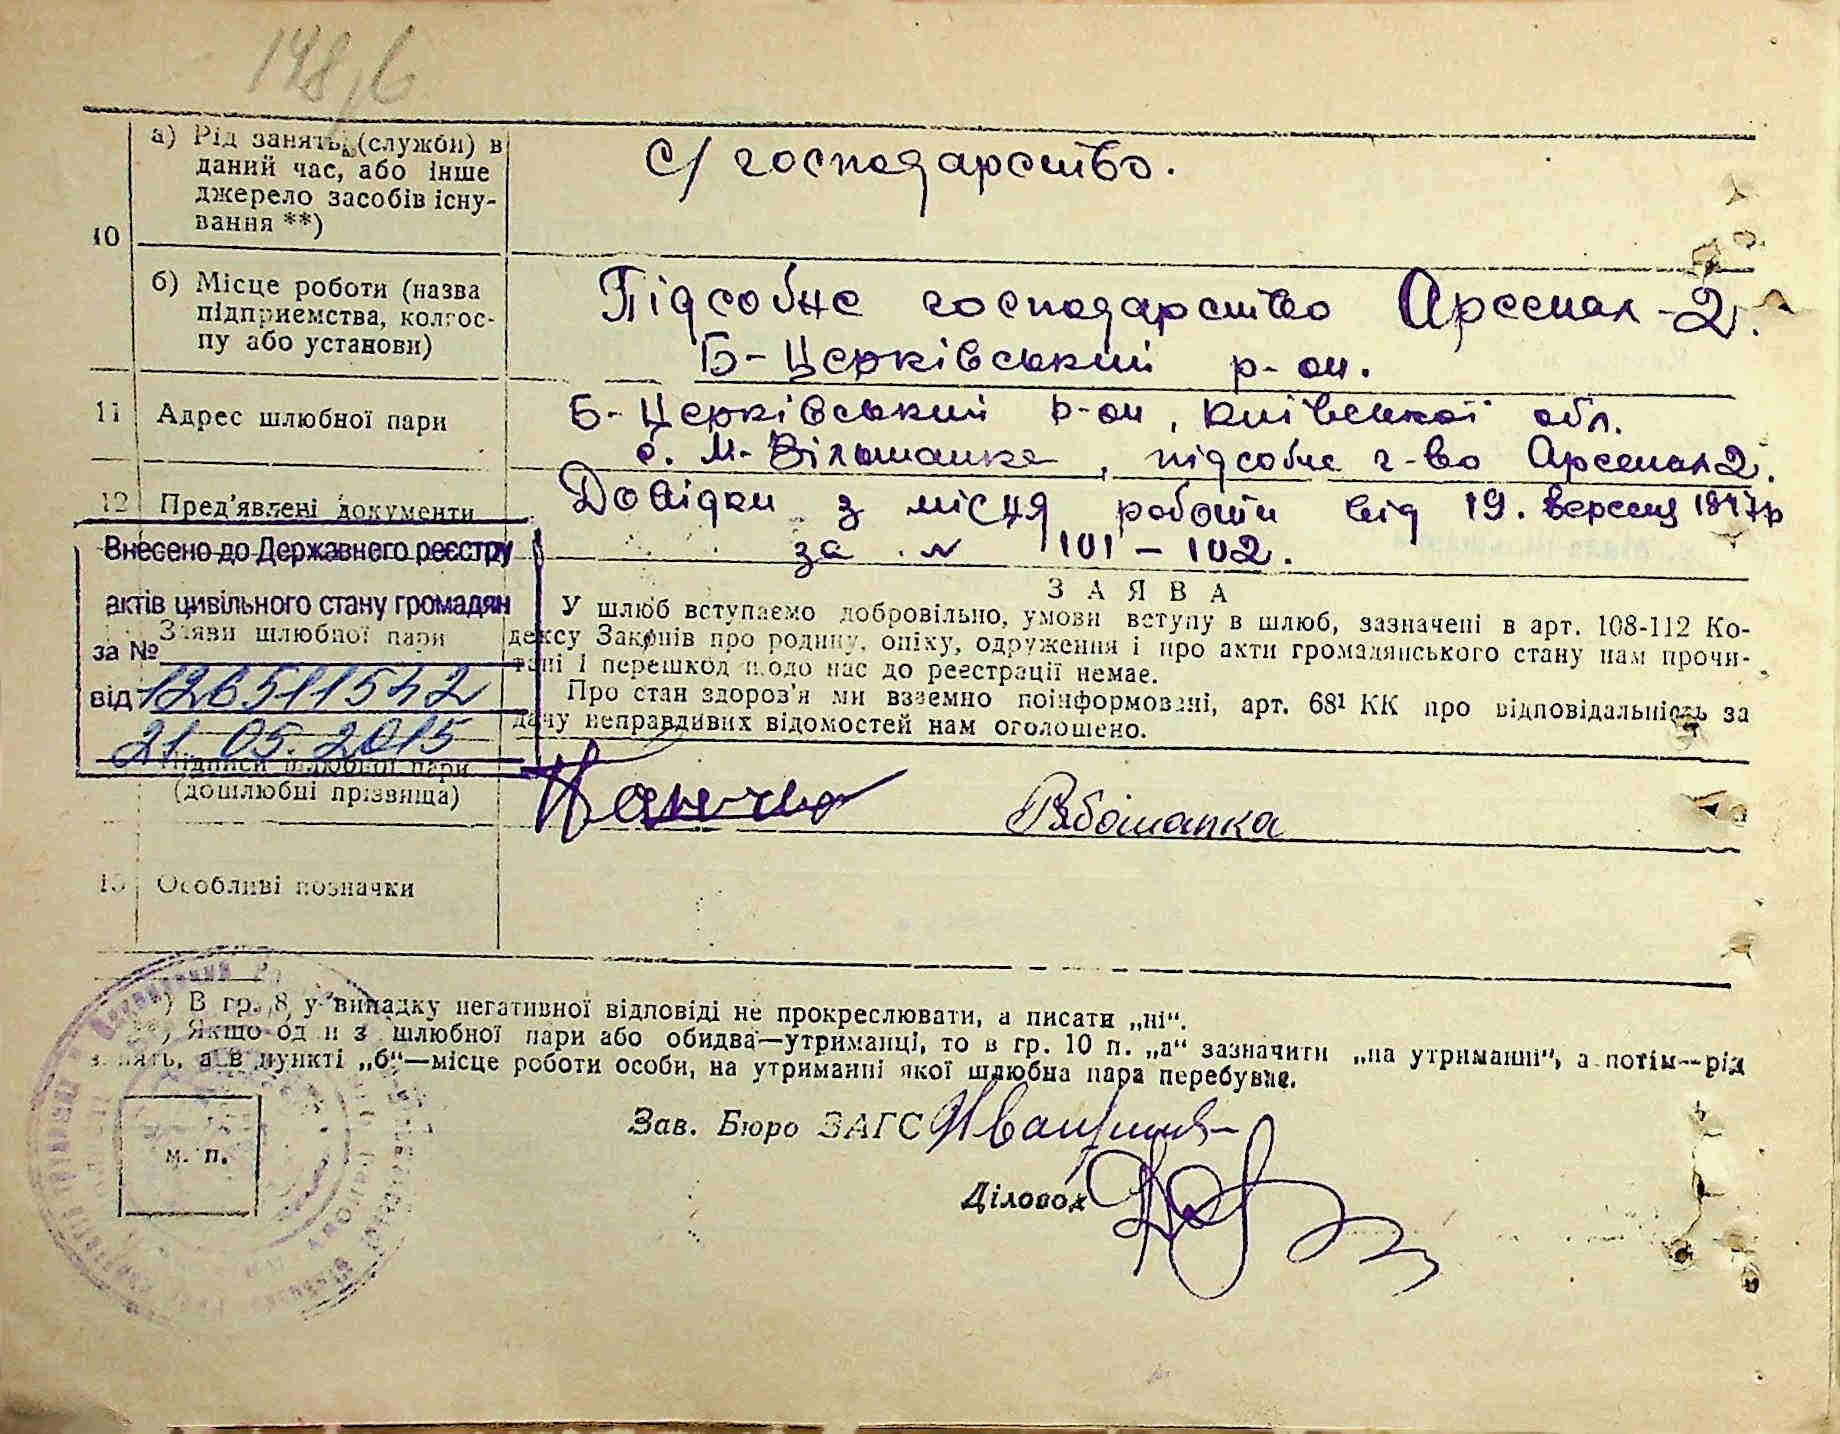 148,6
а) Рід занять (служби) в
даний час, або інше
джерело засобів існу-
вання **)
с/ господарство.
10
б) Місце роботи (назва
підприємства, колгос-
пу або установи)
Підсобне господарство Арсенал-2.
Б-Церківський р-он.
11 Адрес шлюбної пари
Б-Церківський р-он, Київської обл.
с. М-Вільшанка, підсобне г-во Арсенал 2.
12 Пред'явлені документи
Довідки з місця роботи від 19. вересня 1947р
за № 101-102.
Внесено до Державного реєстру
актів цивільного стану громадян
за №
від 126511542
21. 05. 2015
Заяви шлюбної пари
ЗАЯВА
У шлюб вступаємо добровільно, умови вступу в шлюб, зазначені в арт. 108-112 Ко-
дексу Законів про родину, опіку, одруження і про акти громадянського стану нам прочи-
тані і перешкод щодо нас до реєстрації немає.
Про стан здоров'я ми взаємно поінформовані, арт. 68¹ КК про відповідальність за
дачу неправдивих відомостей нам оголошено.
Підписи шлюбної пари
(дошлюбні прізвища)
Рябошапка
13 Особливі позначки
*) В гр. 8 у випадку негативної відповіді не прокреслювати, а писати „ні“.
**) Якщо один з шлюбної пари або обидва—утриманці, то в гр. 10 п. „а“ зазначити „на утриманні“, а потім—рід
занять, а в пункті „б“—місце роботи особи, на утриманні якої шлюбна пара перебуває.
Зав. Бюро ЗАГС
м. п.
Діловод